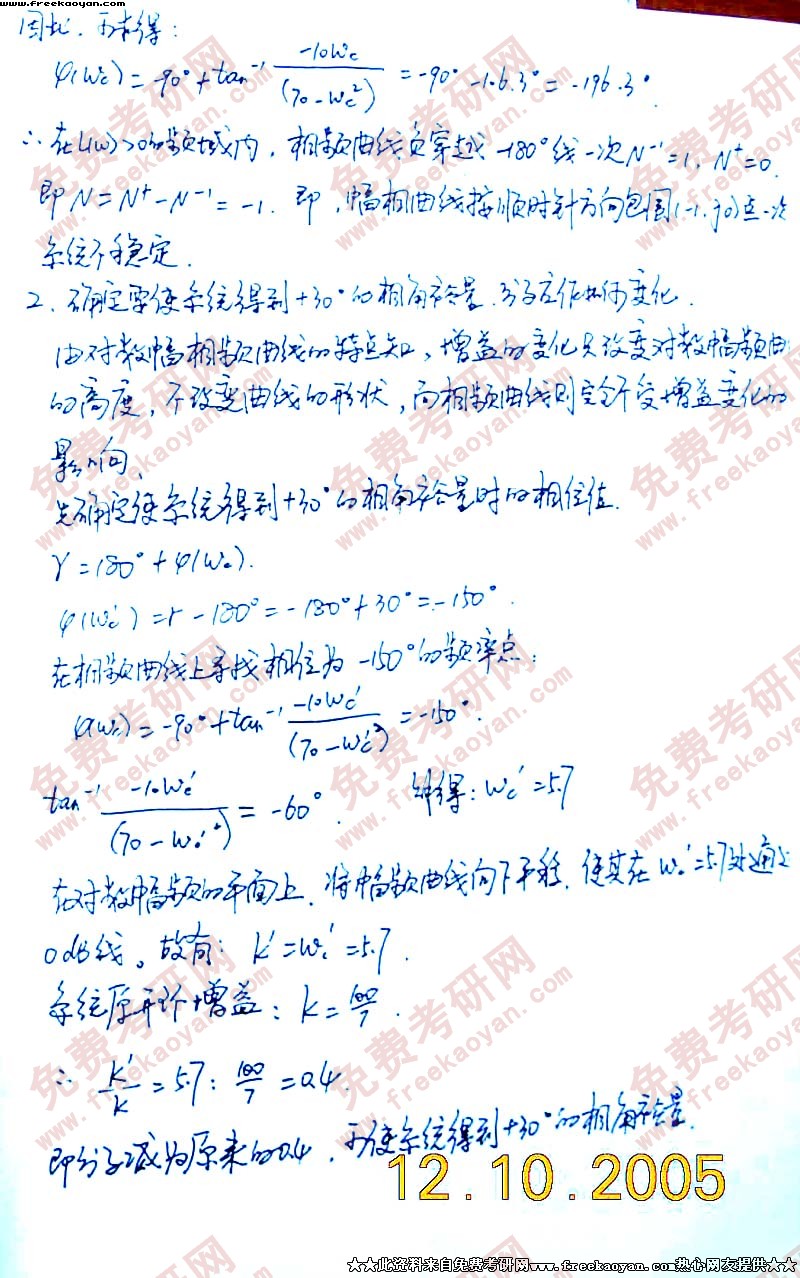 www.freekaoyan.com
因此,可求得:
φ(ωc) = -90° + tan⁻¹ -10ωc / (70-ωc²) = -90° -106.3° = -196.3°.
∴ 在L(ω)>0的频域内,相频曲线负穿越 -180°线一次 N⁻¹=1, N⁺=0.
即 N = N⁺ - N⁻¹ = -1. 即,幅相曲线按顺时针方向包围(-1, j0)点一次
系统不稳定.
2. 确定要使系统得到+30°的相角裕量.分子应作如何变化.
由对数幅相频曲线的特点知,增益的变化只改变对数幅频曲
的高度,不改变曲线的形状,而相频曲线则完全不受增益变化的
影响.
先确定使系统得到+30°的相角裕量时的相位值.
γ = 180° + φ(ωc).
φ(ωc') = γ - 180° = -180° + 30° = -150°.
在相频曲线上寻找相位为 -150°的频率点:
φ(ωc') = -90° + tan⁻¹ -10ωc' / (70-ωc'²) = -150°.
tan⁻¹ -10ωc' / (70-ωc'²) = -60°. 解得: ωc' = 5.7
在对数幅频的平面上.将幅频曲线向下平移.使其在 ωc'=5.7处通过
0dB线。故有: K' = ωc' = 5.7.
系统原开环增益: K = 100/7.
∴ K'/K = 5.7 : 100/7 = 0.4.
即分子减为原来的0.4,可使系统得到+30°的相角裕量.
12.10.2005
★★此资料来自免费考研网www.freekaoyan.com热心网友提供★★
免费考研网
www.freekaoyan.com